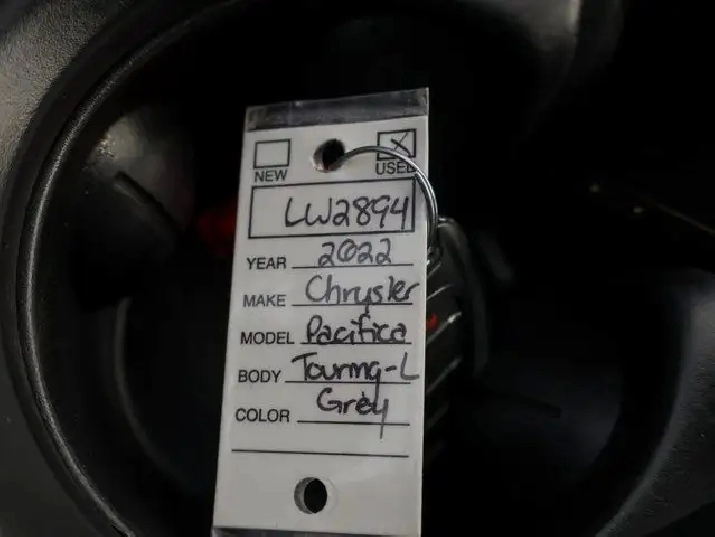 NEW USED
LW2894
YEAR 2022
MAKE Chrysler
MODEL Pacifica
BODY Touring-L
COLOR Grey